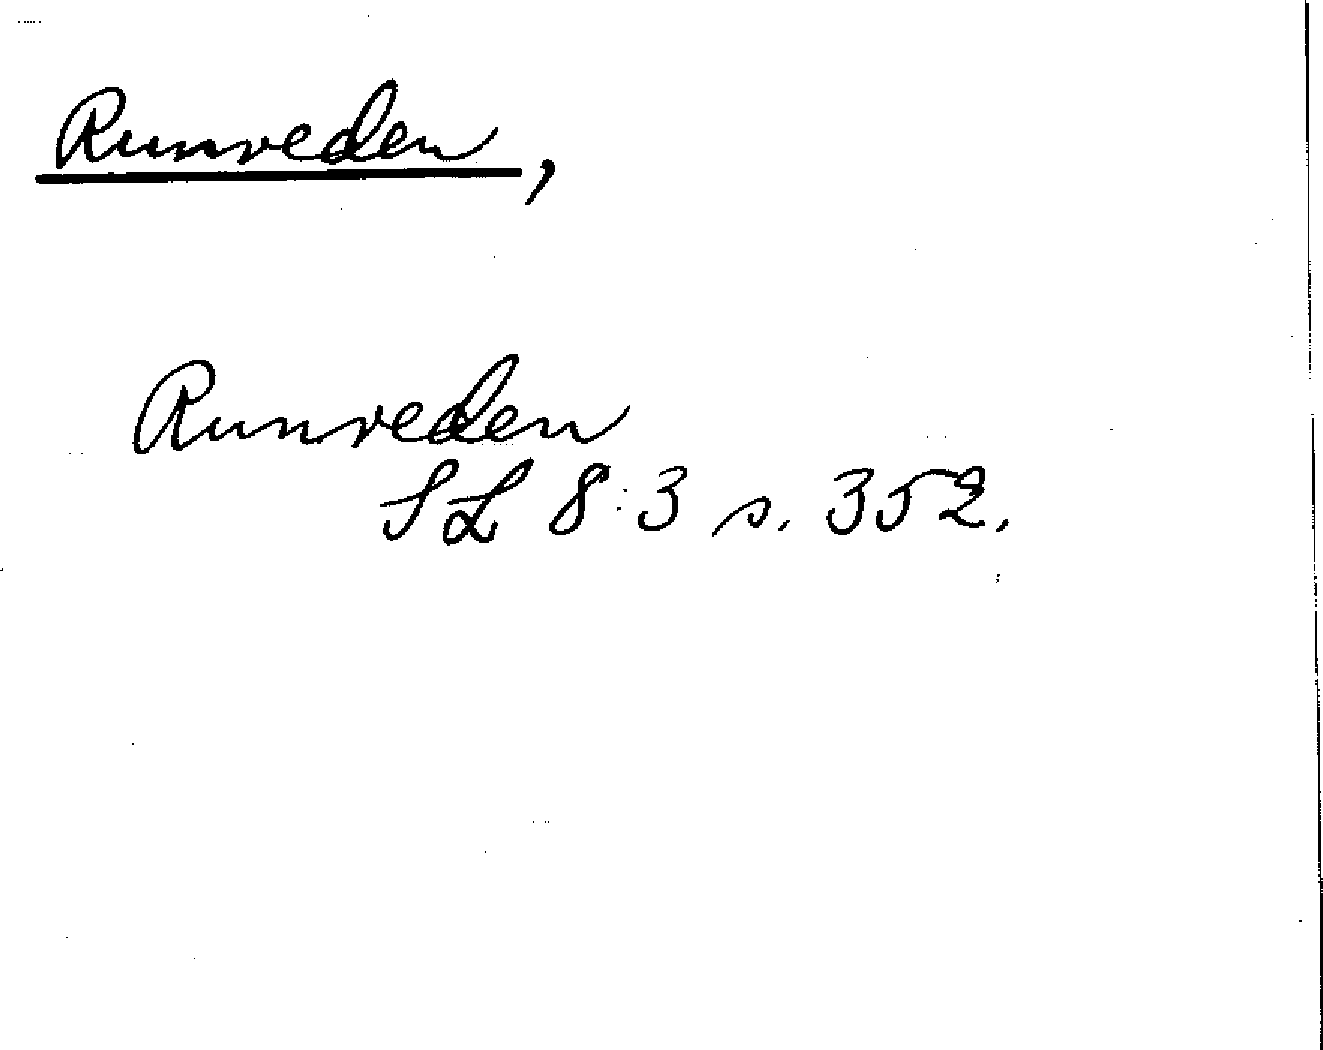 Runveden,
Runveden
SL 8:3 s. 352.